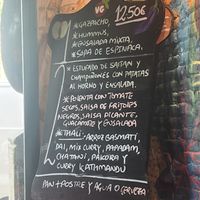 VG 12.50€
*GAZPACHO,
*HUMMUS,
*ENSALADA MIXTA,
*SOPA DE ESPINACA.
*ESTUFADO DE SAITAN Y
CHAMPIÑONES CON PATATAS
AL HORNO Y ENSALADA.
*POLENTA CON TOMATE
SECOS, SALSA DE FRIJOLES
NEGROS, SALSA PICANTE,
GUACAMOLE Y ENSALADA
*THALI-ARROZ BASMATI,
DAL, MIX CURRY, PAPADAM,
CHATANJI, PAKORA Y
CURRY KATHMANDU
PAN+POSTRE Y AGUA O CERVEZA